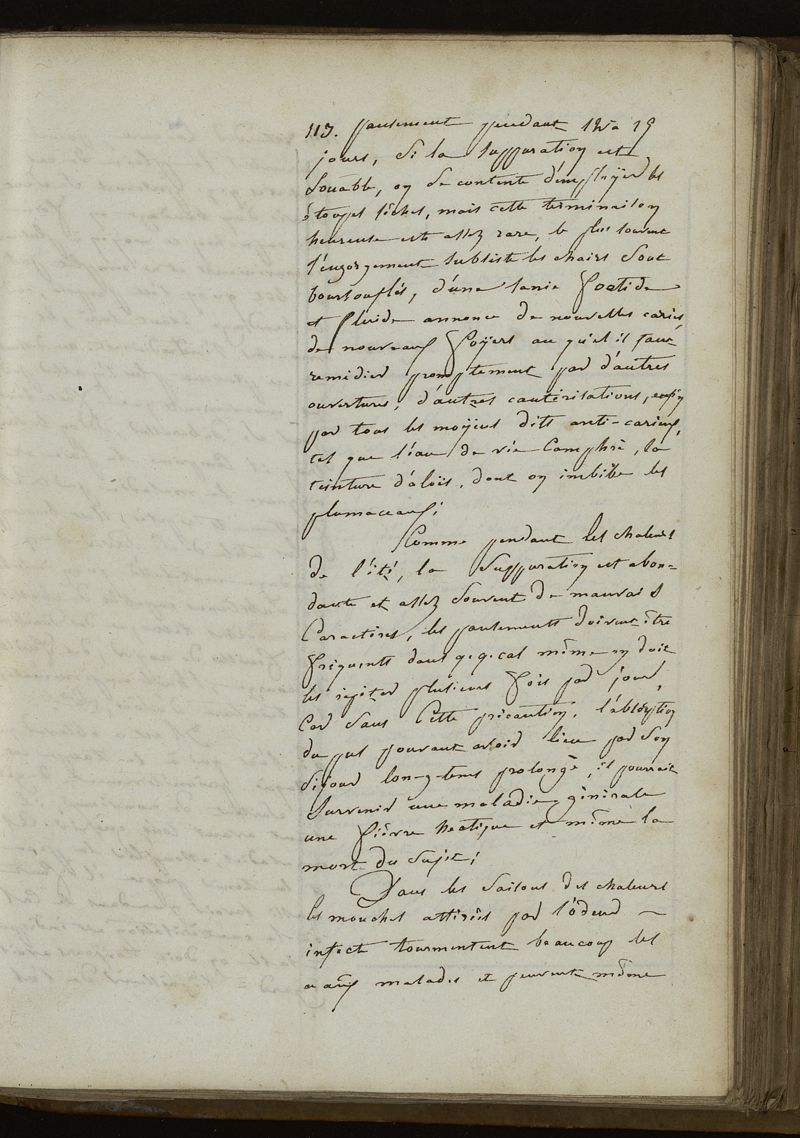 113. pansement pendant 12 a 15
jours, Si la Suppuration est
Louable, on Se contente d'emploÿer les
étoupes séches, mais cette terminaison
heureuse est assez rare, le plus souvent
l'engorgement subsiste les chairs Sont
boursouflés, d'une sanie foetide
et fluide annonce de nouvelles caries,
de nouveaux foÿers au quel il faut
remédier promptement par d'autres
ouvertures, d'autres cautérisations, enfin
par tous les moÿens dits anti-carieux,
tel que l'eau de vie Camphré, la
teinture d'aloës, dont on imbibe les
plumaceaux;
Comme pendant les chaleurs
de l'été, la Suppuration est abon=
dante et assez Souvent de mauvais
Caractéres, les pansements doivent être
fréquents dans q.q. cas même on doit
les répéter plusieurs fois par jour,
Car Sans Cette précaution, l'absorption
du pus pouvant avoir lieu par Son
Séjour long-tems prolongé, il pourrait
Survenir une maladie générale
une fiévre hectique et même la
mort du Sujet;
Dans les Saisons des chaleurs
les mouches attirées par l'ôdeur
infect tourmentent beaucoup les
a aux malades et peuvent même